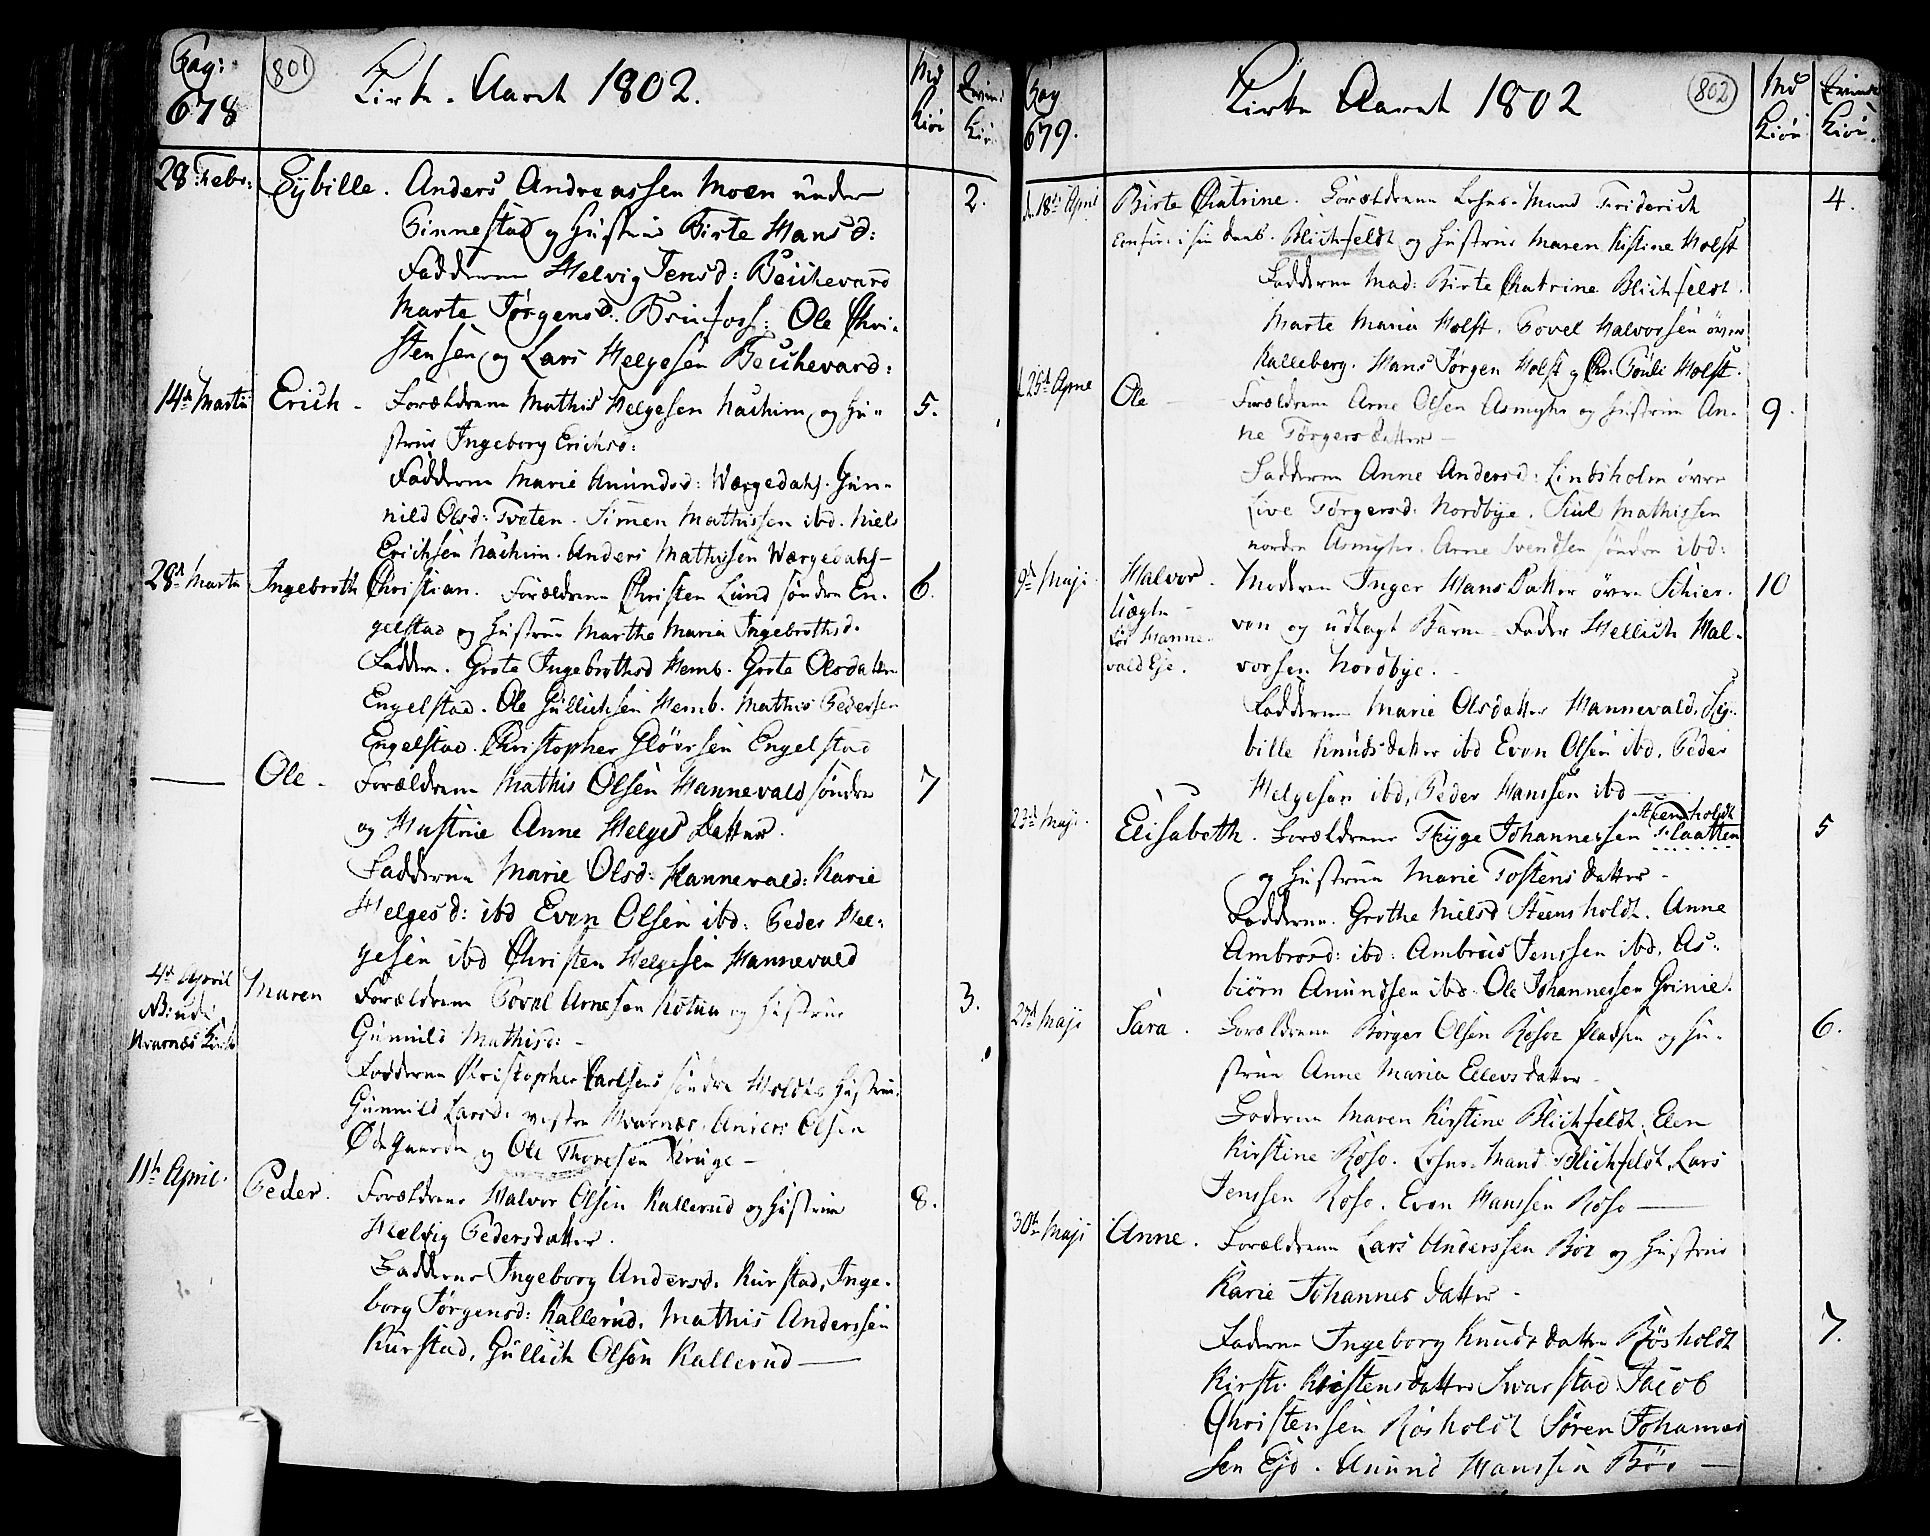 Pag:
678
801
Kirke-Aaret 1802.
Md
Kiön
Qvind
Kiö.
28 Febr:
Sybille. Anders Andreassen Moen under
2.
Finnestad og Hustrue Birte Hansd:
Fadderne Helvig Jensd: Beuchevard
Marte Jørgensd. Ole Chri-
stensen og Lars Helgesen Beuchevard:
14de Martii
Erich - Forældrene Mathis Helgesen Hachim, og Hu-
5.
strue Ingeborg Erichsd:
Fadderne Marie Amundsd: Wærgedahs. Gun-
nild Olsd: Tveten. Simen Mathissen ibd. Niels
Erichsen Hachim. Anders Mathissen Wærgedahs-
28de Martii
Ingebreth Christian. Forældrene Christen Lund söndre En-
6.
gelstad og Hustrue Marthe Maria Ingebrethsd.
Faddere. Grete Ingebrethsd Hemb. Grete Olsdatter
Engelstad. Ole Gullichsen Hemb. Mathis Pedersen
Engelstad. Christopher Gløersen Engelstad
Ole - Forældrene Mathis Olsen Hannevald söndre
7
og Hustrue Anne Helges Datter.
Fadderne Marie Olsd: Hannevald: Karie
Helgesd: ibd Even Olsen ibd: Peder Hel-
gesen ibd Christen Helgesen Hannevald
4de April
i
Hvarnæs Kirke
Maren Forældrene Povel Arnesen og Hustrue
3.
Gunnild Mathisd: -
Fadderne Kristopher Carlsens söndre Holdts Hustrue.
Gunnild Larsd: vestre Hvarnæs. Anders Olsen
Ødegaarden og Ole Thoresen Kruge -
11te April.
Peder. Forældrene Halvor Olsen Kallerud og Hustrue
8.
Helvig Pedersdatter.
Fadderne Ingeborg Andersd. Kurstad, Inge-
borg Jørgensd: Kallerud. Mathis Anderssen
Kurstad, Gullich Olsen Kallerud -
Pag
679.
Kirke Aaret 1802
802
Md
Kiön
Qvinde
Kiön.
d. 18de April
Birte Chatrine. Forældrene Lehns-Mand Friderich
4.
i sin daab. Blichfeldt og Hustrue Maren Kistine Holst
Fadderne Mad: Birte Chatrine Blichfeldt.
Marte Maria Holst. Povel Halvorsen övre
Kalleberg. Hans Jørgen Holst og Chr. Holst.
d 25de April
Ole - Forældrene Arne Olsen Asmyhr og Hustrue An-
9.
ne Törgersdatter -
Fadderne Anne Andersd: Lindsholm övre
Live Törgersd: Nordbye. Mathissen
nordre Asmyhr. Arne Svendsen söndre ibd:
9de Maji.
Halvor.
Uægte -
fød Hanne-
vald Eje.
Moderen Inger Hans Datter övre Schier-
10
ven og udlagt Barne-Fader Mellich Hal-
vorsen Nordbye.
Fadderne Marie Olsdatter Hannevald, Sy-
bille Knudsdatter ibd Even Olsen ibd. Peder
Helgesen ibd, Peder Hanssen ibd
23de Maji.
Steensholdt
Elisabeth. Forældrene Thyge Johannessen Plaatten
5
og Hustrue Marie Tostens datter -
Fadderne. Grethe Nielsd Steensholdt. Anne
Ambrosd: ibd: Ambrois Jenssen ibd. As-
biörn Amundsen ibd. Ole Johannessen Grinie.
27de Maji
Sara. Forældrene Börger Olsen Röso pladsen og Hu-
6.
strue Anne Maria Ellevsdatter -
Fadderne Maren Kirstine Blichfeldt. Elen
Kirstine Röso. Lehns-Mand Blichfeldt, Lars
Jenssen Röso. Even Hanssen Röso -
30te Maji
Anne. Forældrene Lars Anderssen Böe og Hustrue
Karie Johannes datter -
7.
Fadderne Ingeborg Knudsdatter Rösholdt
Kirsti Kristensdatter Svarstad Jacob
Christensen Rösholdt Sören Johannes
sen Eje. Amund Hanssen Böe -